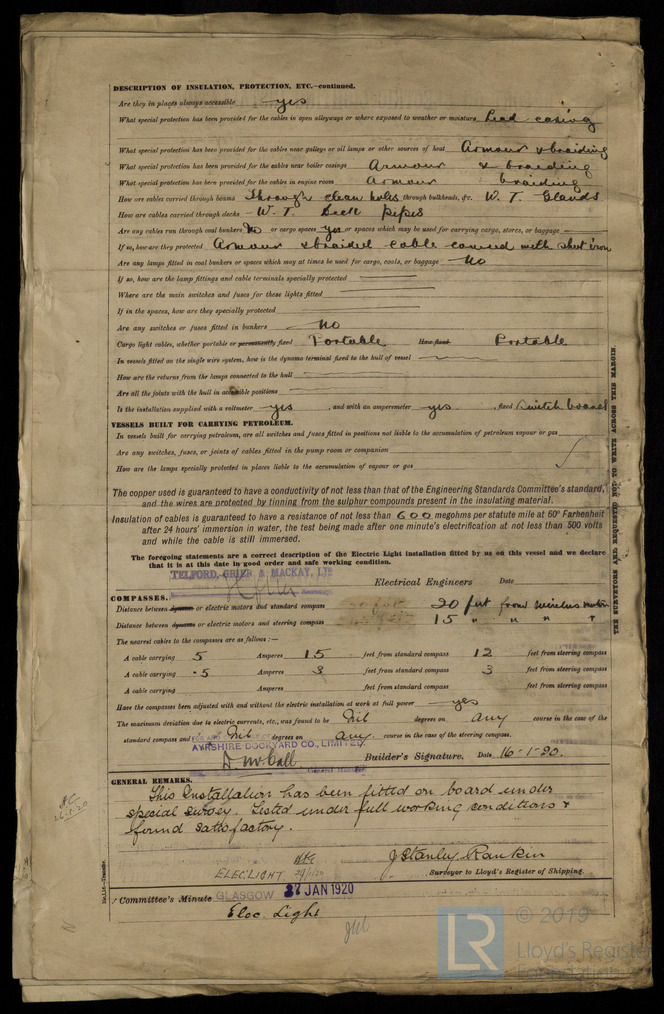 DESCRIPTION OF INSULATION, PROTECTION, ETC.—continued.
Are they in places always accessible yes
What special protection has been provided for the cables in open alleyways or where exposed to weather or moisture Lead casing
What special protection has been provided for the cables near galleys or oil lamps or other sources of heat Armour & braiding
What special protection has been provided for the cables near boiler casings Armour & braiding
What special protection has been provided for the cables in engine room Armour braiding
How are cables carried through beams Through clean holes through bulkheads, &c. W. T. Glands
How are cables carried through decks W. T. Deck pipes
Are any cables run through coal bunkers No or cargo spaces yes or spaces which may be used for carrying cargo, stores, or baggage
If so, how are they protected Armour & braided cable covered with sheet iron
Are any lamps fitted in coal bunkers or spaces which may at times be used for cargo, coals, or baggage No
If so, how are the lamp fittings and cable terminals specially protected
Where are the main switches and fuses for these lights fitted
If in the spaces, how are they specially protected
Are any switches or fuses fitted in bunkers No
Cargo light cables, whether portable or permanently fixed Portable How fixed Portable
In vessels fitted on the single wire system, how is the dynamo terminal fixed to the hull of vessel
How are the returns from the lamps connected to the hull
Are all the joints with the hull in accessible positions
Is the installation supplied with a voltmeter yes, and with an amperemeter yes, fixed Switch board
VESSELS BUILT FOR CARRYING PETROLEUM.
In vessels built for carrying petroleum, are all switches and fuses fitted in positions not liable to the accumulation of petroleum vapour or gas
Are any switches, fuses, or joints of cables fitted in the pump room or companion
How are the lamps specially protected in places liable to the accumulation of vapour or gas
The copper used is guaranteed to have a conductivity of not less than that of the Engineering Standards Committee's standard,
and the wires are protected by tinning from the sulphur compounds present in the insulating material.
Insulation of cables is guaranteed to have a resistance of not less than 600 megohms per statute mile at 60° Farhenheit
after 24 hours' immersion in water, the test being made after one minute's electrification at not less than 500 volts
and while the cable is still immersed.
The foregoing statements are a correct description of the Electric Light installation fitted by us on this vessel and we declare
that it is at this date in good order and safe working condition.
TELFORD, GRIER & MACKAY, LTD
Electrical Engineers Date
COMPASSES.
Distance between dynamo or electric motors and standard compass 20 feet from wireless motor
Distance between dynamo or electric motors and steering compass 15 " " " "
The nearest cables to the compasses are as follows:—
A cable carrying 5 Amperes 15 feet from standard compass 12 feet from steering compass
A cable carrying .5 Amperes 3 feet from standard compass 3 feet from steering compass
A cable carrying Amperes feet from standard compass feet from steering compass
Have the compasses been adjusted with and without the electric installation at work at full power yes
The maximum deviation due to electric currents, etc., was found to be Nil degrees on any course in the case of the
standard compass and Nil degrees on any course in the case of the steering compass.
AYRSHIRE DOCKYARD CO., LIMITED
Builder's Signature. Date 16-1-20.
GENERAL REMARKS.
This Installation has been fitted on board under
special survey. Tested under full working conditions &
found satisfactory.
J Stanley Rankin
ELEC. LIGHT
Surveyor to Lloyd's Register of Shipping.
Committee's Minute GLASGOW 27 JAN 1920
Elec. Light
THE SURVEYORS ARE REQUESTED NOT TO WRITE ACROSS THIS MARGIN.
LR
© 2019
Lloyd's Register
Foundation